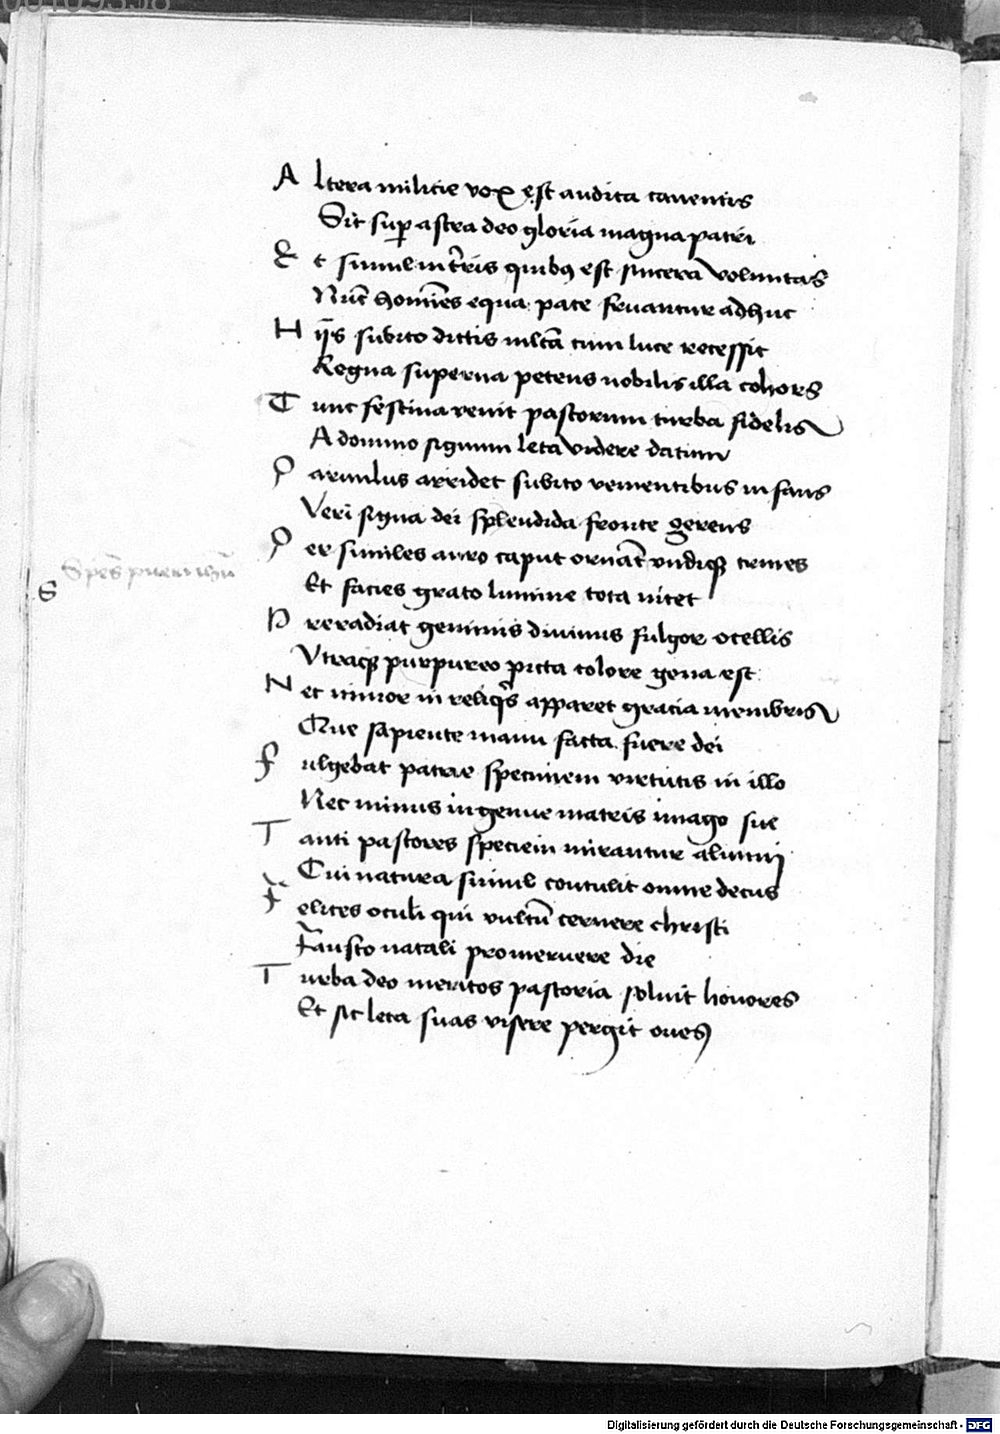 Altera militie vox est audita canentis
Sit sup astra deo gloria magna patri
Et simul in tris quibꝯ est sincera voluntas
Nūc homīes equa pace fruantur adhuc
Hijs subito dictis mltā cum luce recessit
Regna superna petens nobilis illa cohors
Tunc festina venit pastorum turba fidelis
A domino signum leta videre datum
Paruulus arridet subito venientibus infans
Veri signa dei splendida fronte gerens
Per similes auro caput ornāt vndiqꝫ crines
Et facies grato lumine tota nitet
Preradiat geminis diuinus fulgor ocellis
Vtraqꝫ purpureo picta colore gena est
Nec minor in reliqis apparet gracia membris
Que sapiente manu facta fuere dei
Fulgebat patrie specimem virtutis in illo
Nec minus ingenue matris imago sue
Tanti pastores speciem mirantur alumni
Cui natura simul contulit omne decus
Felices oculi qui vultū cernere christi
Fausto natali promeruere die
Turba deo meritos pastoria soluit honores
Et sic leta suas visere pergit oues
Spēs pueri ihū
S
Digitalisierung gefördert durch die Deutsche Forschungsgemeinschaft - DFG